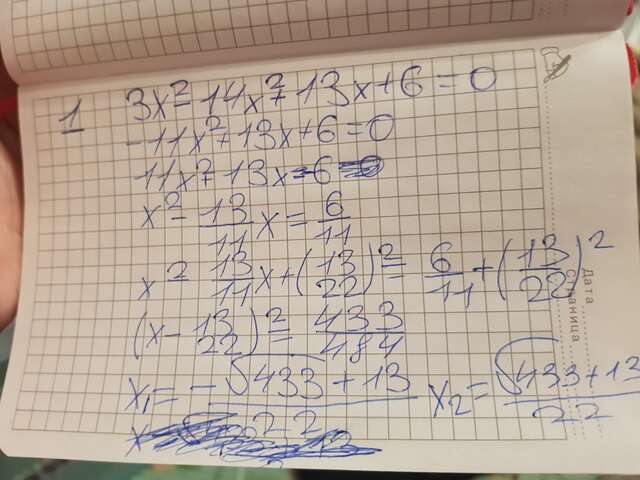 1 3x²-14x²+13x+6=0
-11x²+13x+6=0
11x²-13x-6=0
x²-13/11x=6/11
x²-13/11x+(13/22)²=6/11+(13/22)²
(x-13/22)²=433/484
x₁=-√433+13/22 x₂=√433+13/22
Страница
Дата